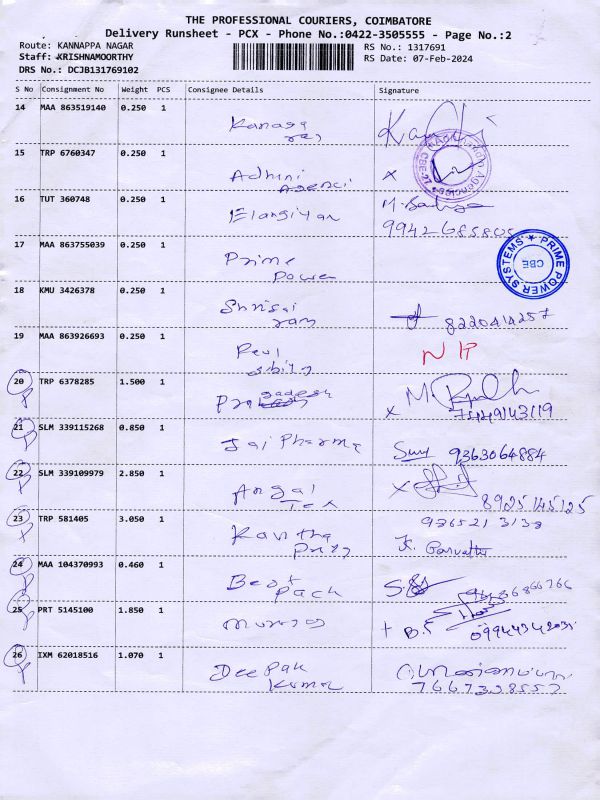 THE PROFESSIONAL COURIERS, COIMBATORE
Delivery Runsheet - PCX - Phone No.:0422-3505555 - Page No.:2
Route: KANNAPPA NAGAR
RS No.: 1317691
Staff: KRISHNAMOORTHY
RS Date: 07-Feb-2024
DRS No.: DCJB131769102
S No Consignment No Weight PCS Consignee Details Signature
14 MAA 863519140 0.250 1
Kanaga
raj
15 TRP 6760347 0.250 1
Adhini
Agenci
x
16 TUT 360748 0.250 1
Elangiyan
99426 85805
17 MAA 863755039 0.250 1
Prime
Power
PRIME POWER SYSTEMS
CBE
18 KMU 3426378 0.250 1
Shrisai
ram
8220414257
19 MAA 863926693 0.250 1
N P
20 TRP 6378285 1.500 1
x
21 SLM 339115268 0.850 1
Jai Pharma
9363064884
22 SLM 339109979 2.850 1
Angal
Tex
x
8925145125
23 TRP 581405 3.050 1
Kavitha
936521 3133
K. Parvathi
24 MAA 104370993 0.460 1
Best
Pack
25 PRT 5145100 1.850 1
26 IXM 62018516 1.070 1
DeePak
Kumar
7667398557